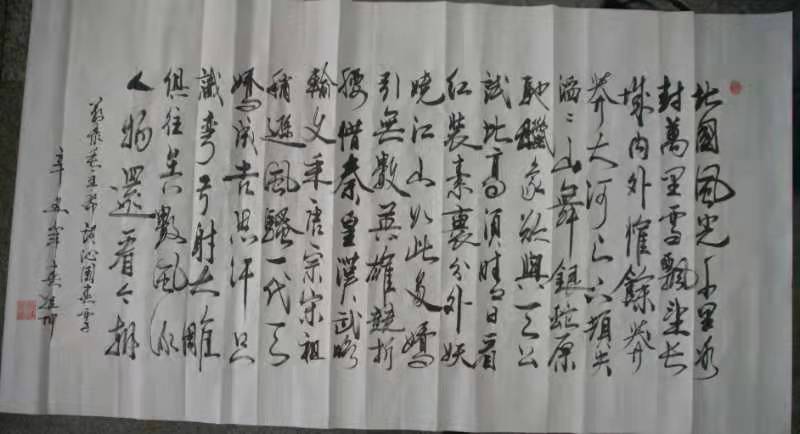 北國風光千里冰
封萬里雪飄望長
城内外惟餘莽
莽大河上下頓失
滔〻山舞銀蛇原
馳蠟象欲與天公
試比高須晴日看
紅裝素裹分外妖
嬈江山如此多嬌
引無數英雄競折
腰惜秦皇漢武略
輸文采唐宗宋祖
稍遜風騷一代天
嬌成吉思汗只
識彎弓射大雕
俱往矣數風流
人物還看今朝
主席詞沁園春雪
辛丑年